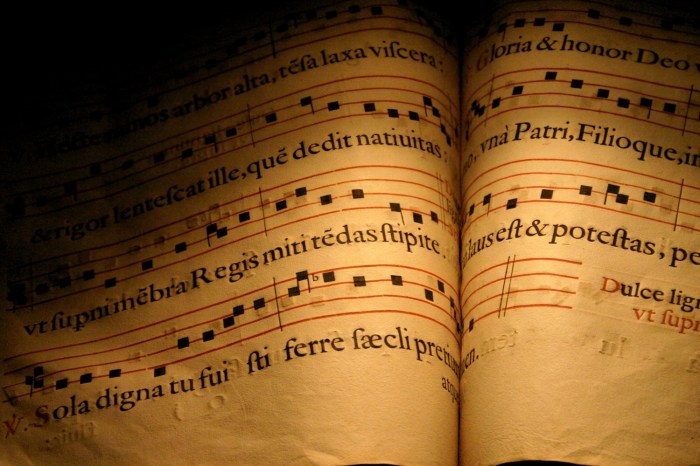 Flecte ramos arbor alta, tēſa laxa viſcera:
& rigor lenteſcat ille, quē dedit natiuitas:
vt ſupni mēbra Regis miti tēdas ſtipite.
℣. Sola digna tu fui ſti ferre ſæcli
Gloria & honor Deo
vnà Patri, Filioque, in
laus eſt & poteſtas, pe
Dulce lign
vt ſupr